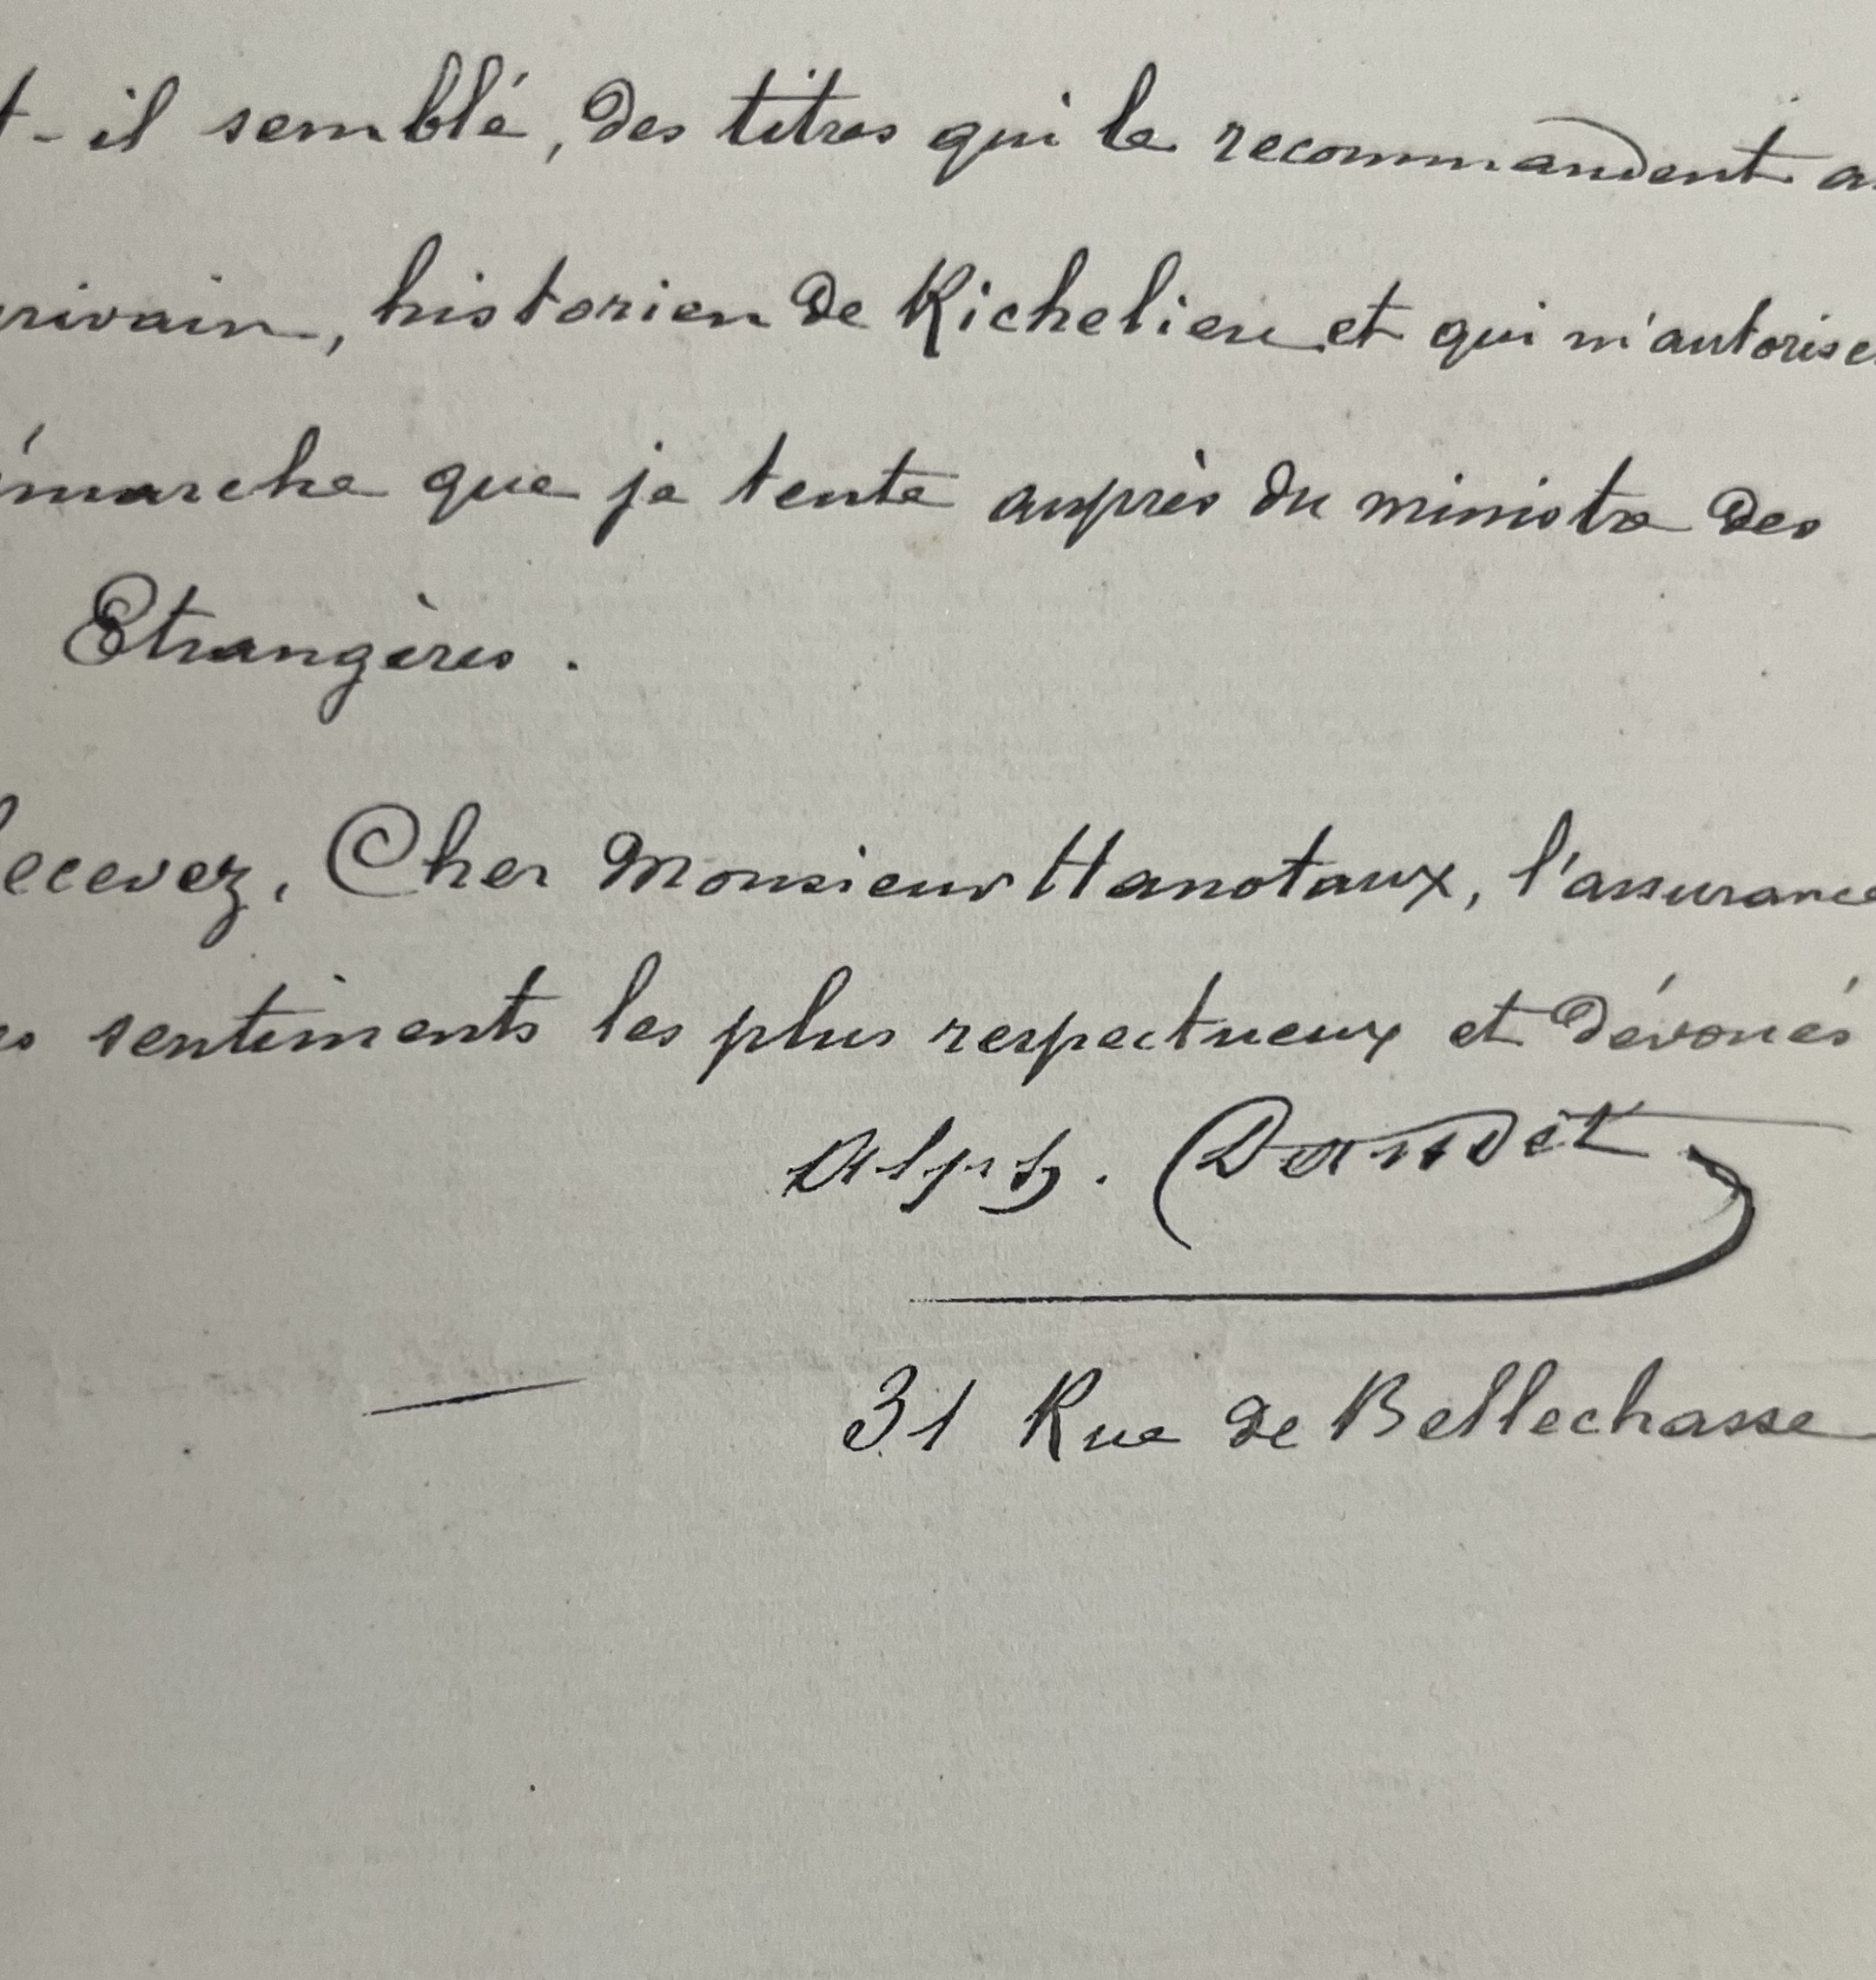 t-il semblé, des titres qui le recommandent a
rivain, historien de Richelieu et qui m'autorise
émarche que je tente auprès du ministre des
Etrangères.
ecevez, Cher Monsieur Hanotaux, l'assurance
s sentiments les plus respectueux et dévoués
Alph. Daudet
31 Rue de Bellechasse